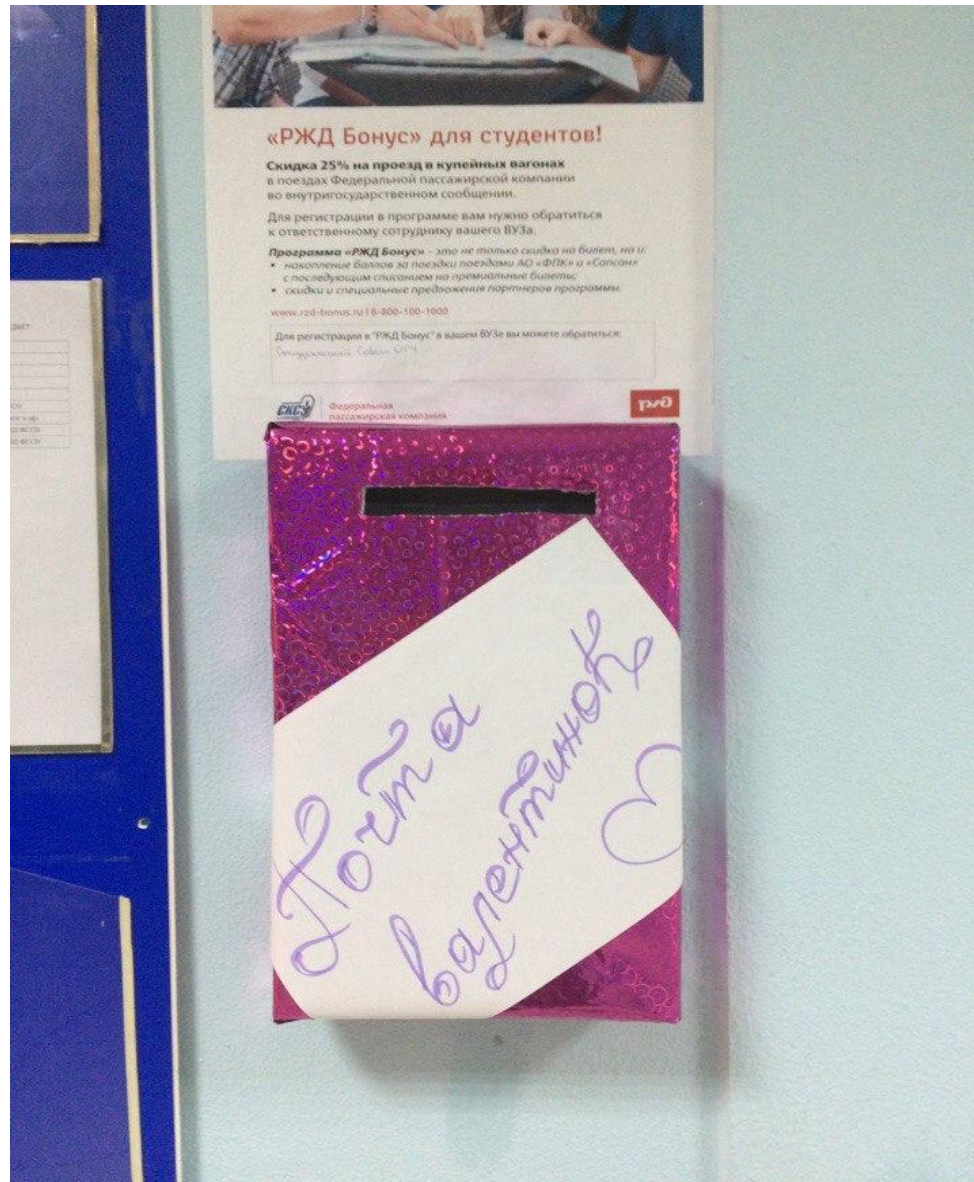 «РЖД Бонус» для студентов!
Скидка 25% на проезд в купейных вагонах
в поездах Федеральной пассажирской компании
во внутригосударственном сообщении.
Для регистрации в программе вам нужно обратиться
к ответственному сотруднику вашего ВУЗа.
Программа «РЖД Бонус» – это не только скидка на билет, но и:
• накопление баллов за поездки поездами АО «ФПК» и «Сапсан»
с последующим списанием на премиальные билеты;
• скидки и специальные предложения партнеров программы.
www.rzd-bonus.ru | 8-800-100-1000
Для регистрации в "РЖД Бонус" в вашем ВУЗе вы можете обратиться:
СКС
Федеральная
пассажирская компания
РЖД
Почта
валентинок